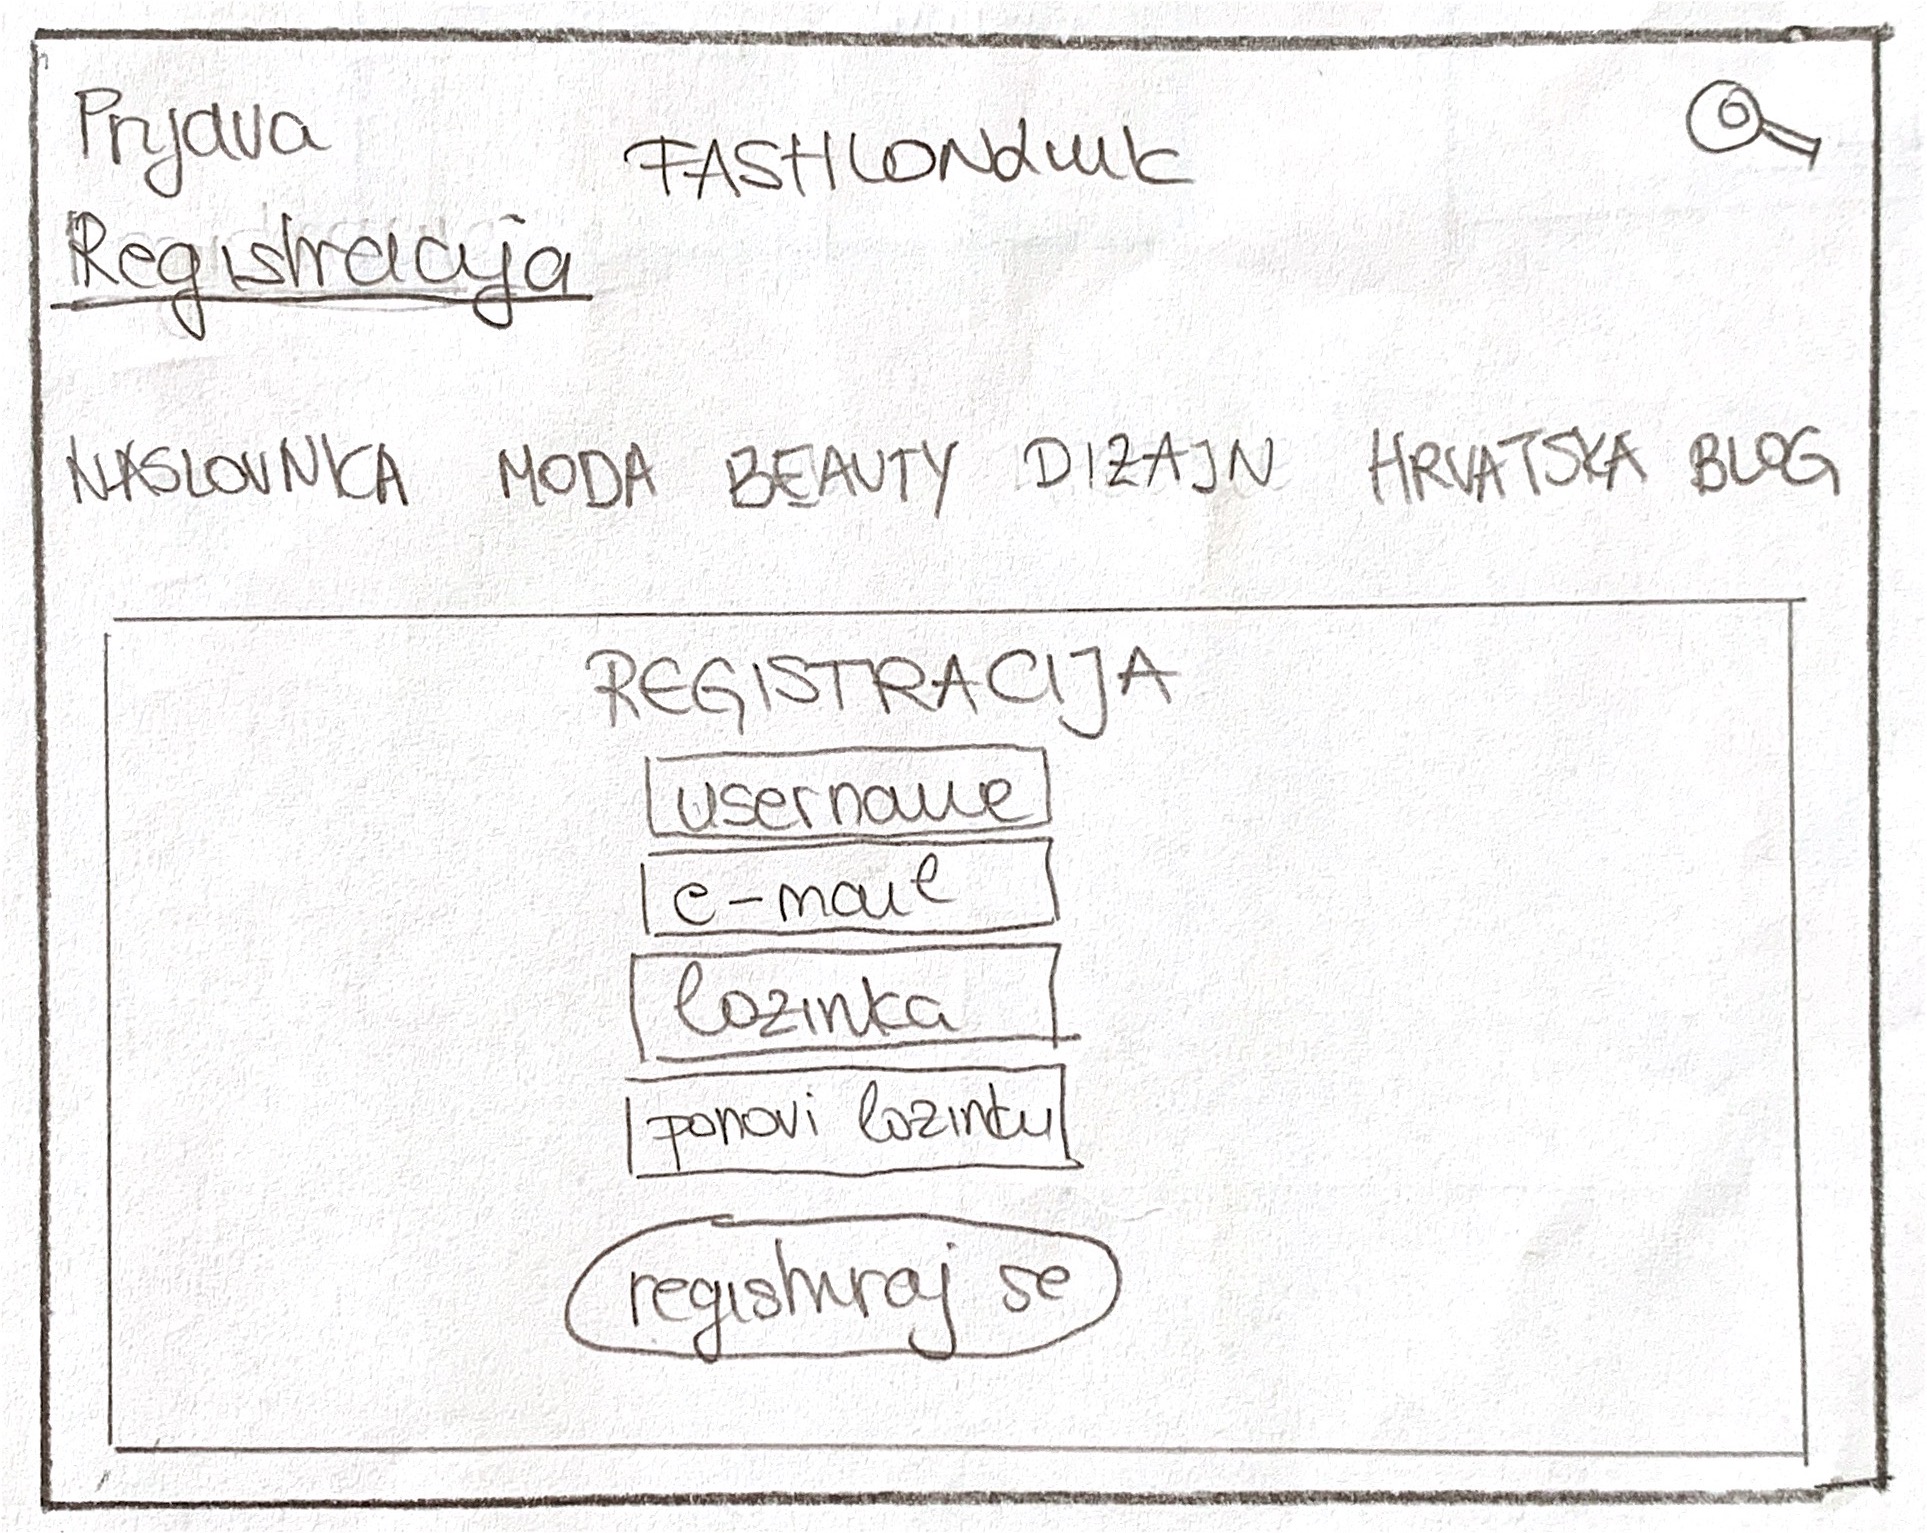 Prijava
FASHIONdnik
Registracija
NASLOVNICA MODA BEAUTY DIZAJN HRVATSKA BLOG
REGISTRACIJA
username
e-mail
lozinka
ponovi lozinku
registriraj se